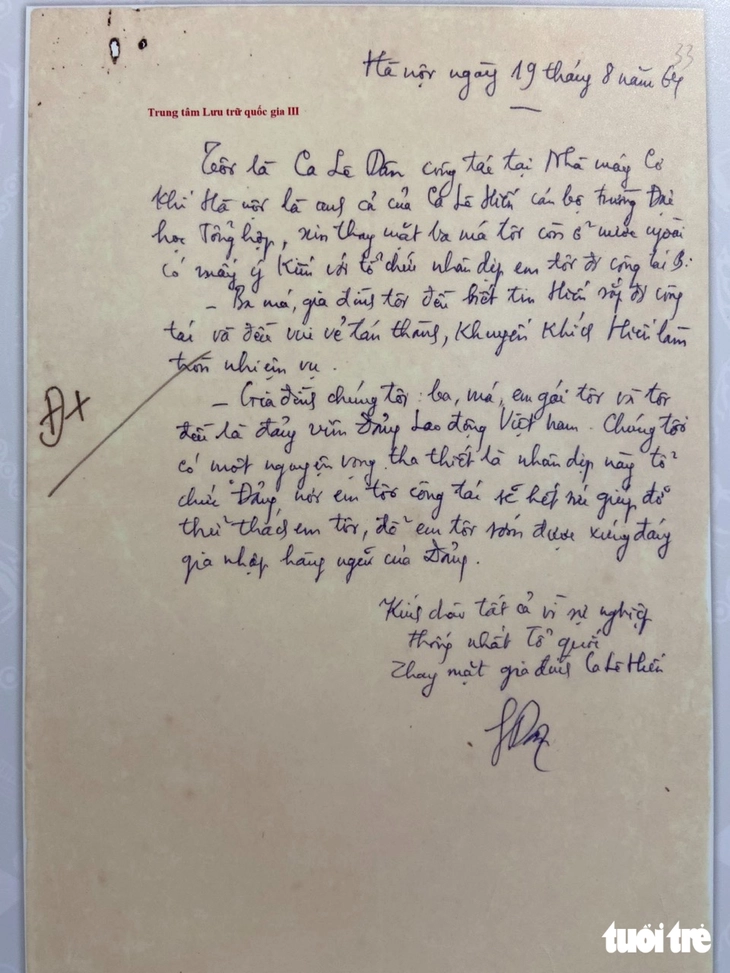 33
Hà nội ngày 19 tháng 8 năm 64
Trung tâm Lưu trữ quốc gia III
Tôi là Ca Lê Dân công tác tại Nhà máy Cơ
Khí Hà nội là anh cả của Ca Lê Hiến cán bộ trường Đại
học Tổng hợp, xin thay mặt ba má tôi còn ở nước ngoài
có mấy ý kiến với tổ chức nhân dịp em tôi đi công tác B:
– Ba má, gia đình tôi đều biết tin Hiến sắp đi công
tác và đều vui vẻ tán thành, khuyến khích Hiến làm
tròn nhiệm vụ.
ĐX
– Gia đình chúng tôi: ba, má, em gái tôi và tôi
đều là đảng viên Đảng Lao động Việt nam. Chúng tôi
có một nguyện vọng tha thiết là nhân dịp này tổ
chức Đảng nơi em tôi công tác sẽ hết sức giúp đỡ
thử thách em tôi, để em tôi sớm được xứng đáng
gia nhập hàng ngũ của Đảng.
Kính chào tất cả vì sự nghiệp
thống nhất Tổ quốc
Thay mặt gia đình Ca Lê Hiến
tuổi trẻ